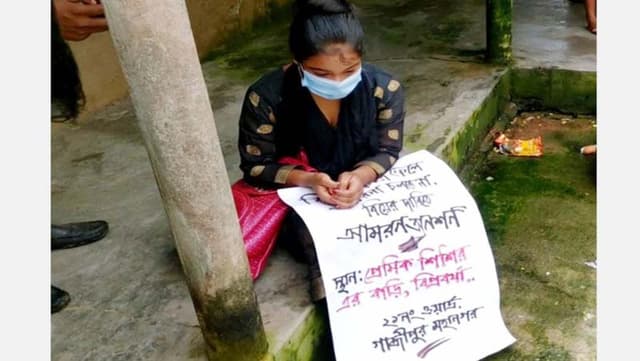 চলবে না.
বিয়ের দাবিতে
আমরন অনশন
স্থান: প্রেমিক শিশির
এর বাড়ি, বিপ্রবর্থা..
২১নং ওয়ার্ড.
গাজীপুর মহানগর